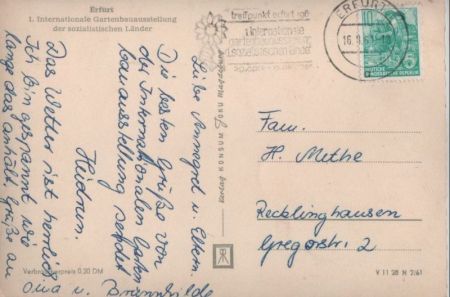 Erfurt
1. Internationale Gartenbauausstellung
der sozialistischen Länder
treffpunkt erfurt 1961
1. internationale
gartenbauausstellung
sozialistischer länder
ERFURT
16. 9.
-10
DEUTSCHE
DEMOKRATISCHE REPUBLIK
5
Liebe Annegret u. Eltern.
Die besten Grüße von
der Internationalen Garten
bauausstellung sendet
Heidrun.
Das Wetter ist herrlich
Ich bin gespannt wie
lange das anhält. Grüße an
Oma u. Brunnhilde
Fam.
H. Methe
Recklinghausen
Gregorstr. 2
Verlag KONSUM
Verbraucherpreis 0,20 DM
V 11 28 N 7/61